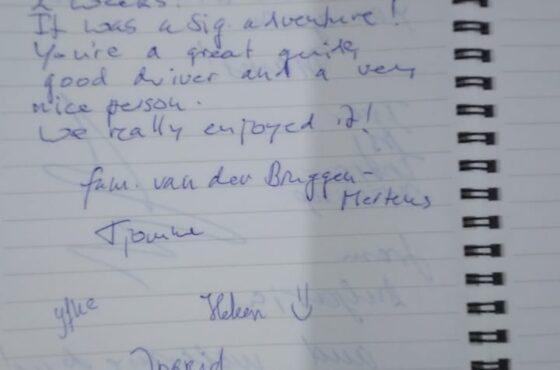 2 weeks.
It was a big adventure!
You're a great guide,
good driver and a very
nice person.
We really enjoyed it!
fam. van der Bruggen-
Mertens
Tjomme
yfke Heleen
Ingrid